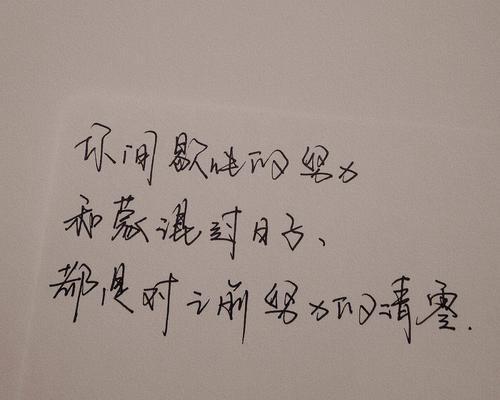 你间歇性的努力
和蒙混过日子、
都是对之前努力的清零.